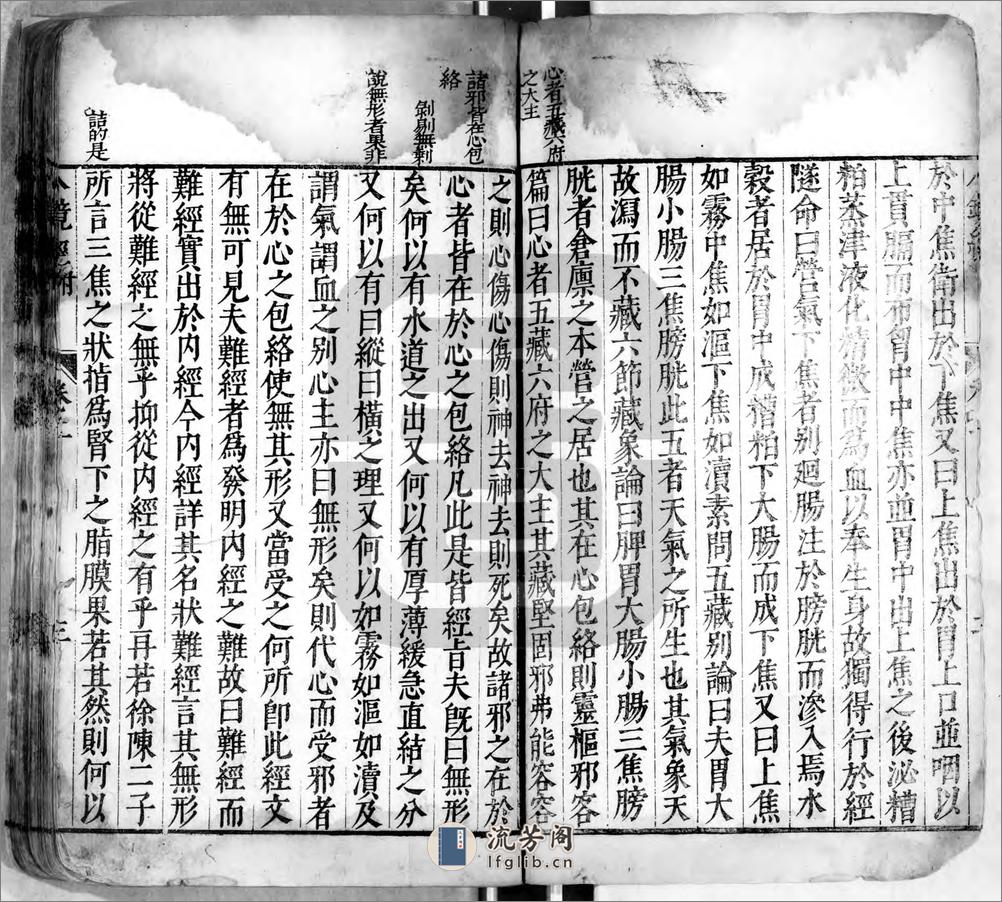 心者五藏六府
之大主
於中焦衛出於下焦又曰上焦出於胃上口並咽以
上貫膈而布胷中中焦亦並胃中出上焦之後泌糟
粕蒸津液化精微而爲血以奉生身故獨得行於經
隧命曰營氣下焦者别廻腸注於膀胱而滲入焉水
榖者居於胃中成糟粕下大腸而成下焦又曰上焦
如霧中焦如漚下焦如瀆素問五藏别論曰夫胃大
腸小腸三焦膀胱此五者天氣之所生也其氣象天
故瀉而不藏六節藏象論曰脾胃大腸小腸三焦膀
胱者倉廩之本營之居也其在心包絡則靈樞邪客
篇曰心者五藏六府之大主其藏堅固邪弗能容容
諸邪皆在心包
絡
剝剔無剩
說無形者果非
詰的是
之則心傷心傷則神去神去則死矣故諸邪之在於
心者皆在於心之包絡凡此是皆經旨夫旣曰無形
矣何以有水道之出又何以有厚薄緩急直結之分
又何以有曰縱曰橫之理又何以如霧如漚如瀆及
謂氣謂血之别心主亦曰無形矣則代心而受邪者
在於心之包絡使無其形又當受之何所卽此經文
有無可見夫難經者爲發明内經之難故曰難經而
難經實出於内經今内經詳其名狀難經言其無形
將從難經之無乎抑從内經之有乎再若徐陳二子
所言三焦之狀指爲腎下之脂膜果若其然則何以
流芳阁
lfglib.cn